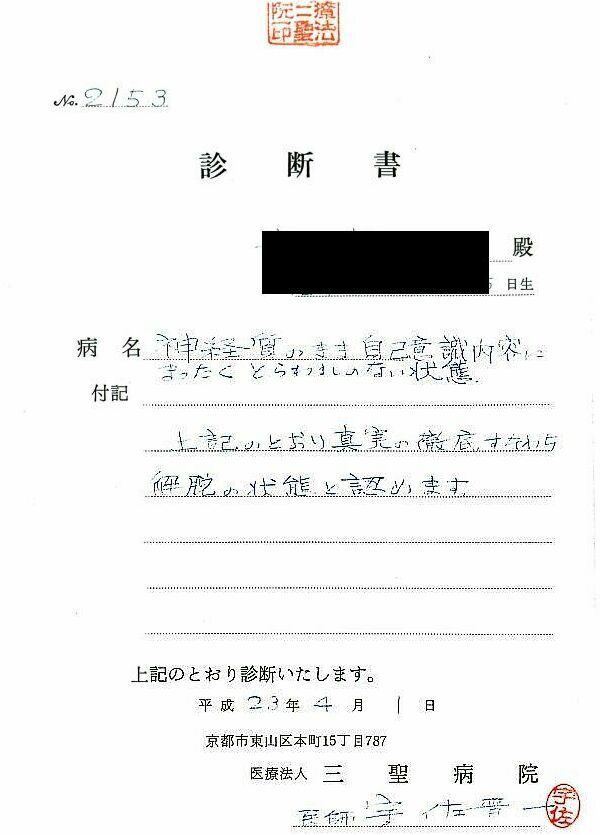 療法
三聖
院印
No. 2153
診断書
殿
5日生
病名 神経質のまま自己意識内容に
まったくとらわれのない状態
付記
上記のとおり真実の徹底すなわち
細胞の状態と認めます
上記のとおり診断いたします。
平成 23年 4月 1日
京都市東山区本町15丁目787
医療法人 三聖病院
医師 宇佐晋一
宇佐